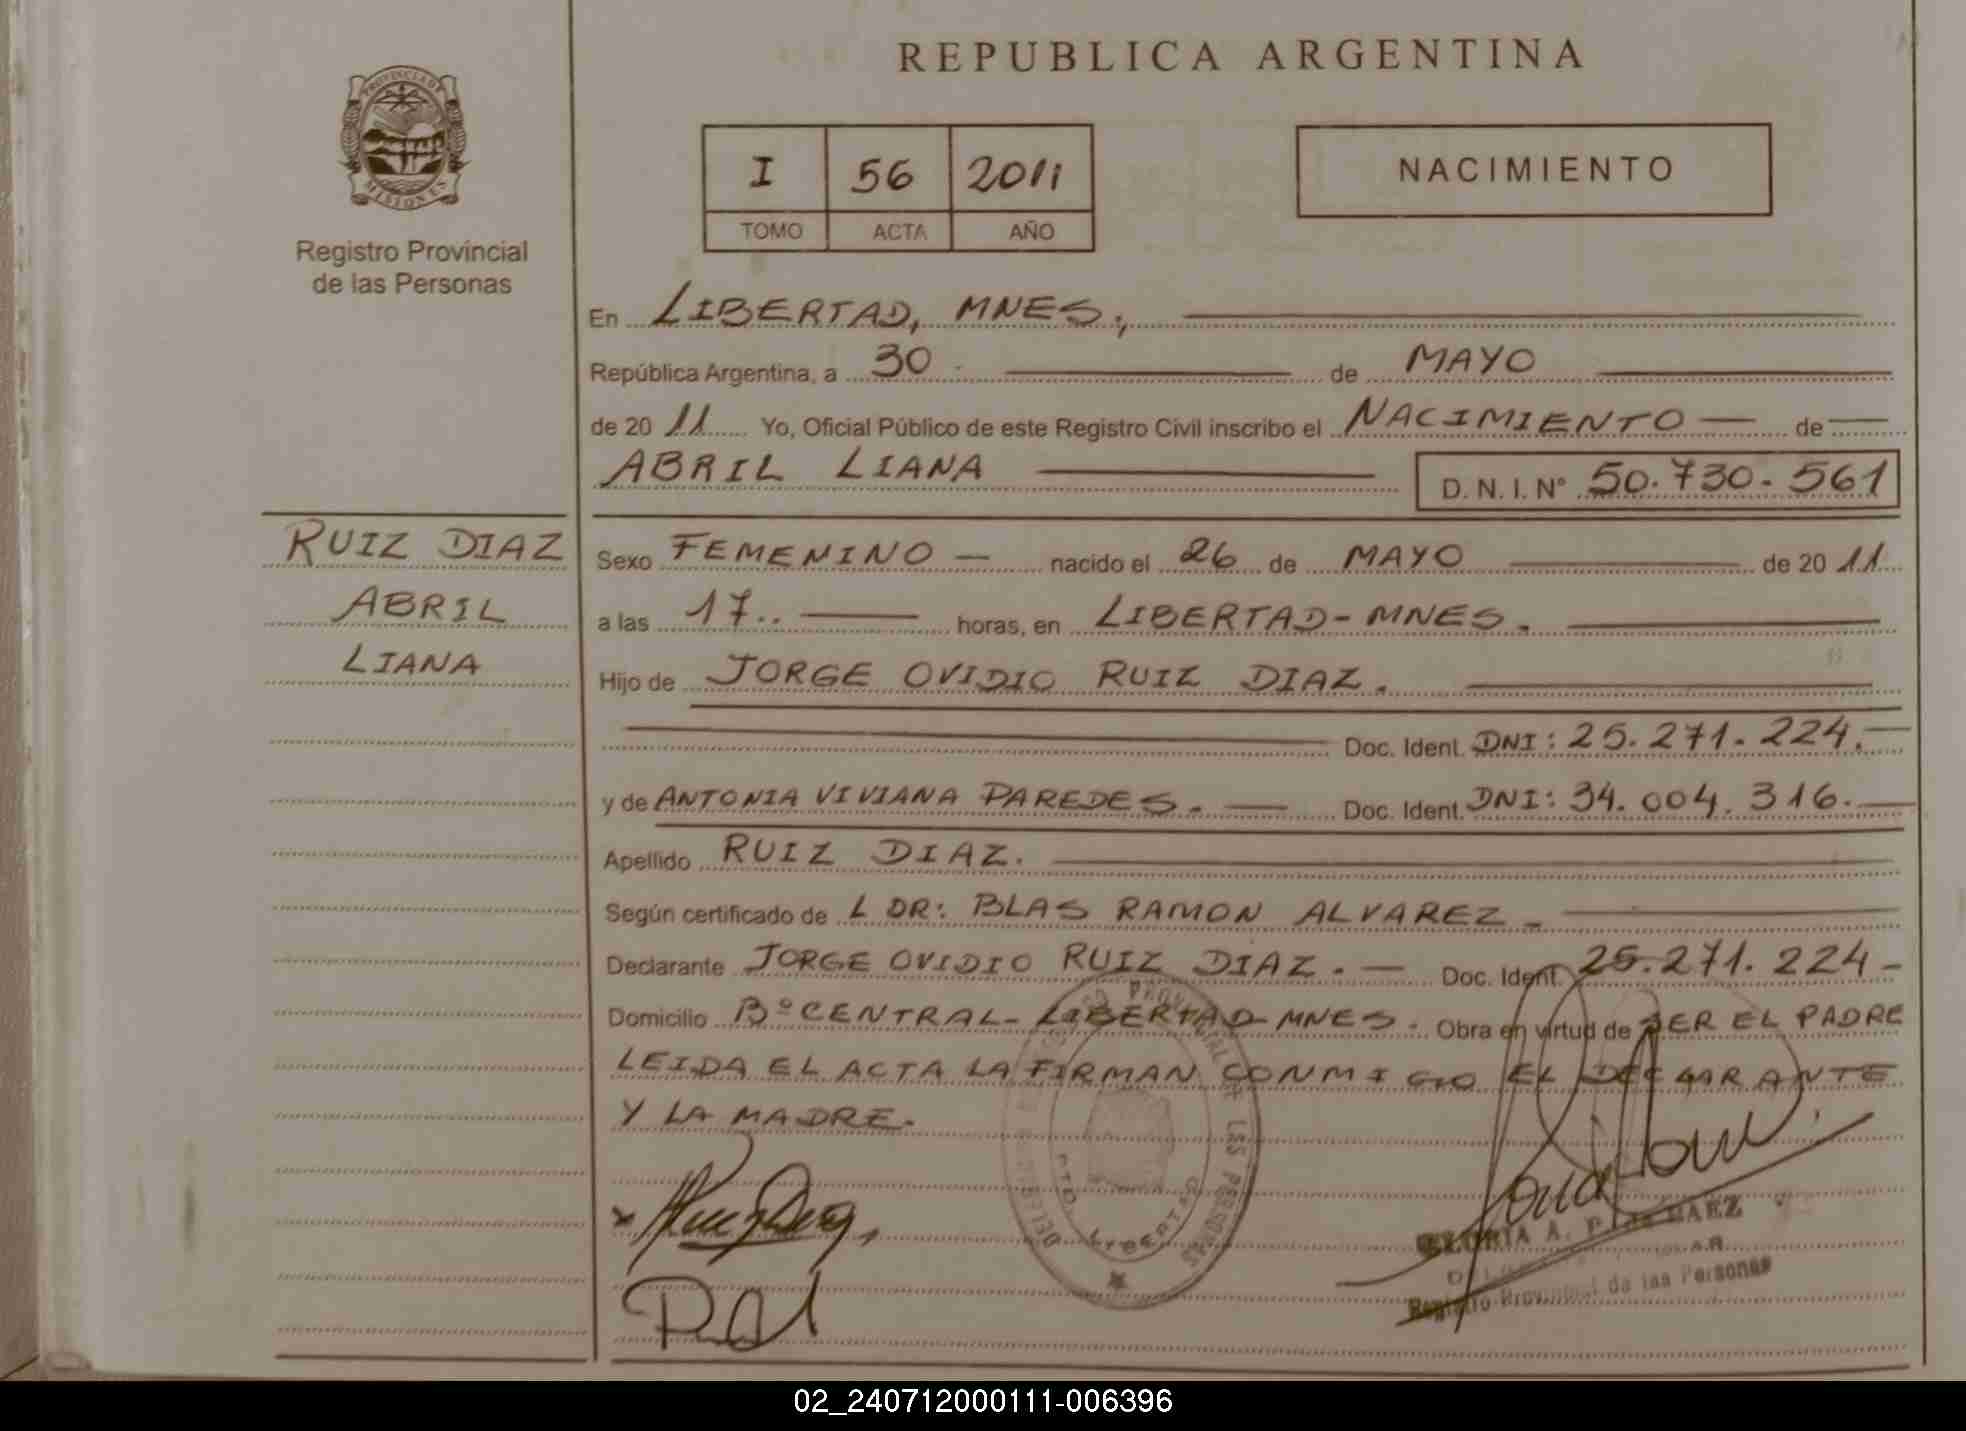 REPUBLICA ARGENTINA
PROVINCIA DE
MISIONES
Registro Provincial
de las Personas
I 56 2011
TOMO ACTA AÑO
NACIMIENTO
En LIBERTAD, MNES.,
República Argentina, a 30 de MAYO
de 20 11 Yo, Oficial Público de este Registro Civil inscribo el NACIMIENTO de
ABRIL LIANA D. N. I. N° 50.730.561
RUIZ DIAZ
ABRIL
LIANA
Sexo FEMENINO nacido el 26 de MAYO de 20 11
a las 17.. horas, en LIBERTAD-MNES.
Hijo de JORGE OVIDIO RUIZ DIAZ.
Doc. Ident. DNI: 25.271.224.
y de ANTONIA VIVIANA PAREDES. Doc. Ident. DNI: 34.004.316.
Apellido RUIZ DIAZ.
Según certificado de L DR: BLAS RAMON ALVAREZ
Declarante JORGE OVIDIO RUIZ DIAZ. Doc. Ident. 25.271.224
Domicilio Bº CENTRAL-LIBERTAD-MNES. Obra en virtud de SER EL PADRE
LEIDA EL ACTA LA FIRMAN CONMIGO EL DECLARANTE
Y LA MADRE.
PROVINCIAL DE LAS PERSONAS
LIBERTAD
GLORIA A. P. de BAEZ
Registro Provincial de las Personas
02_240712000111-006396